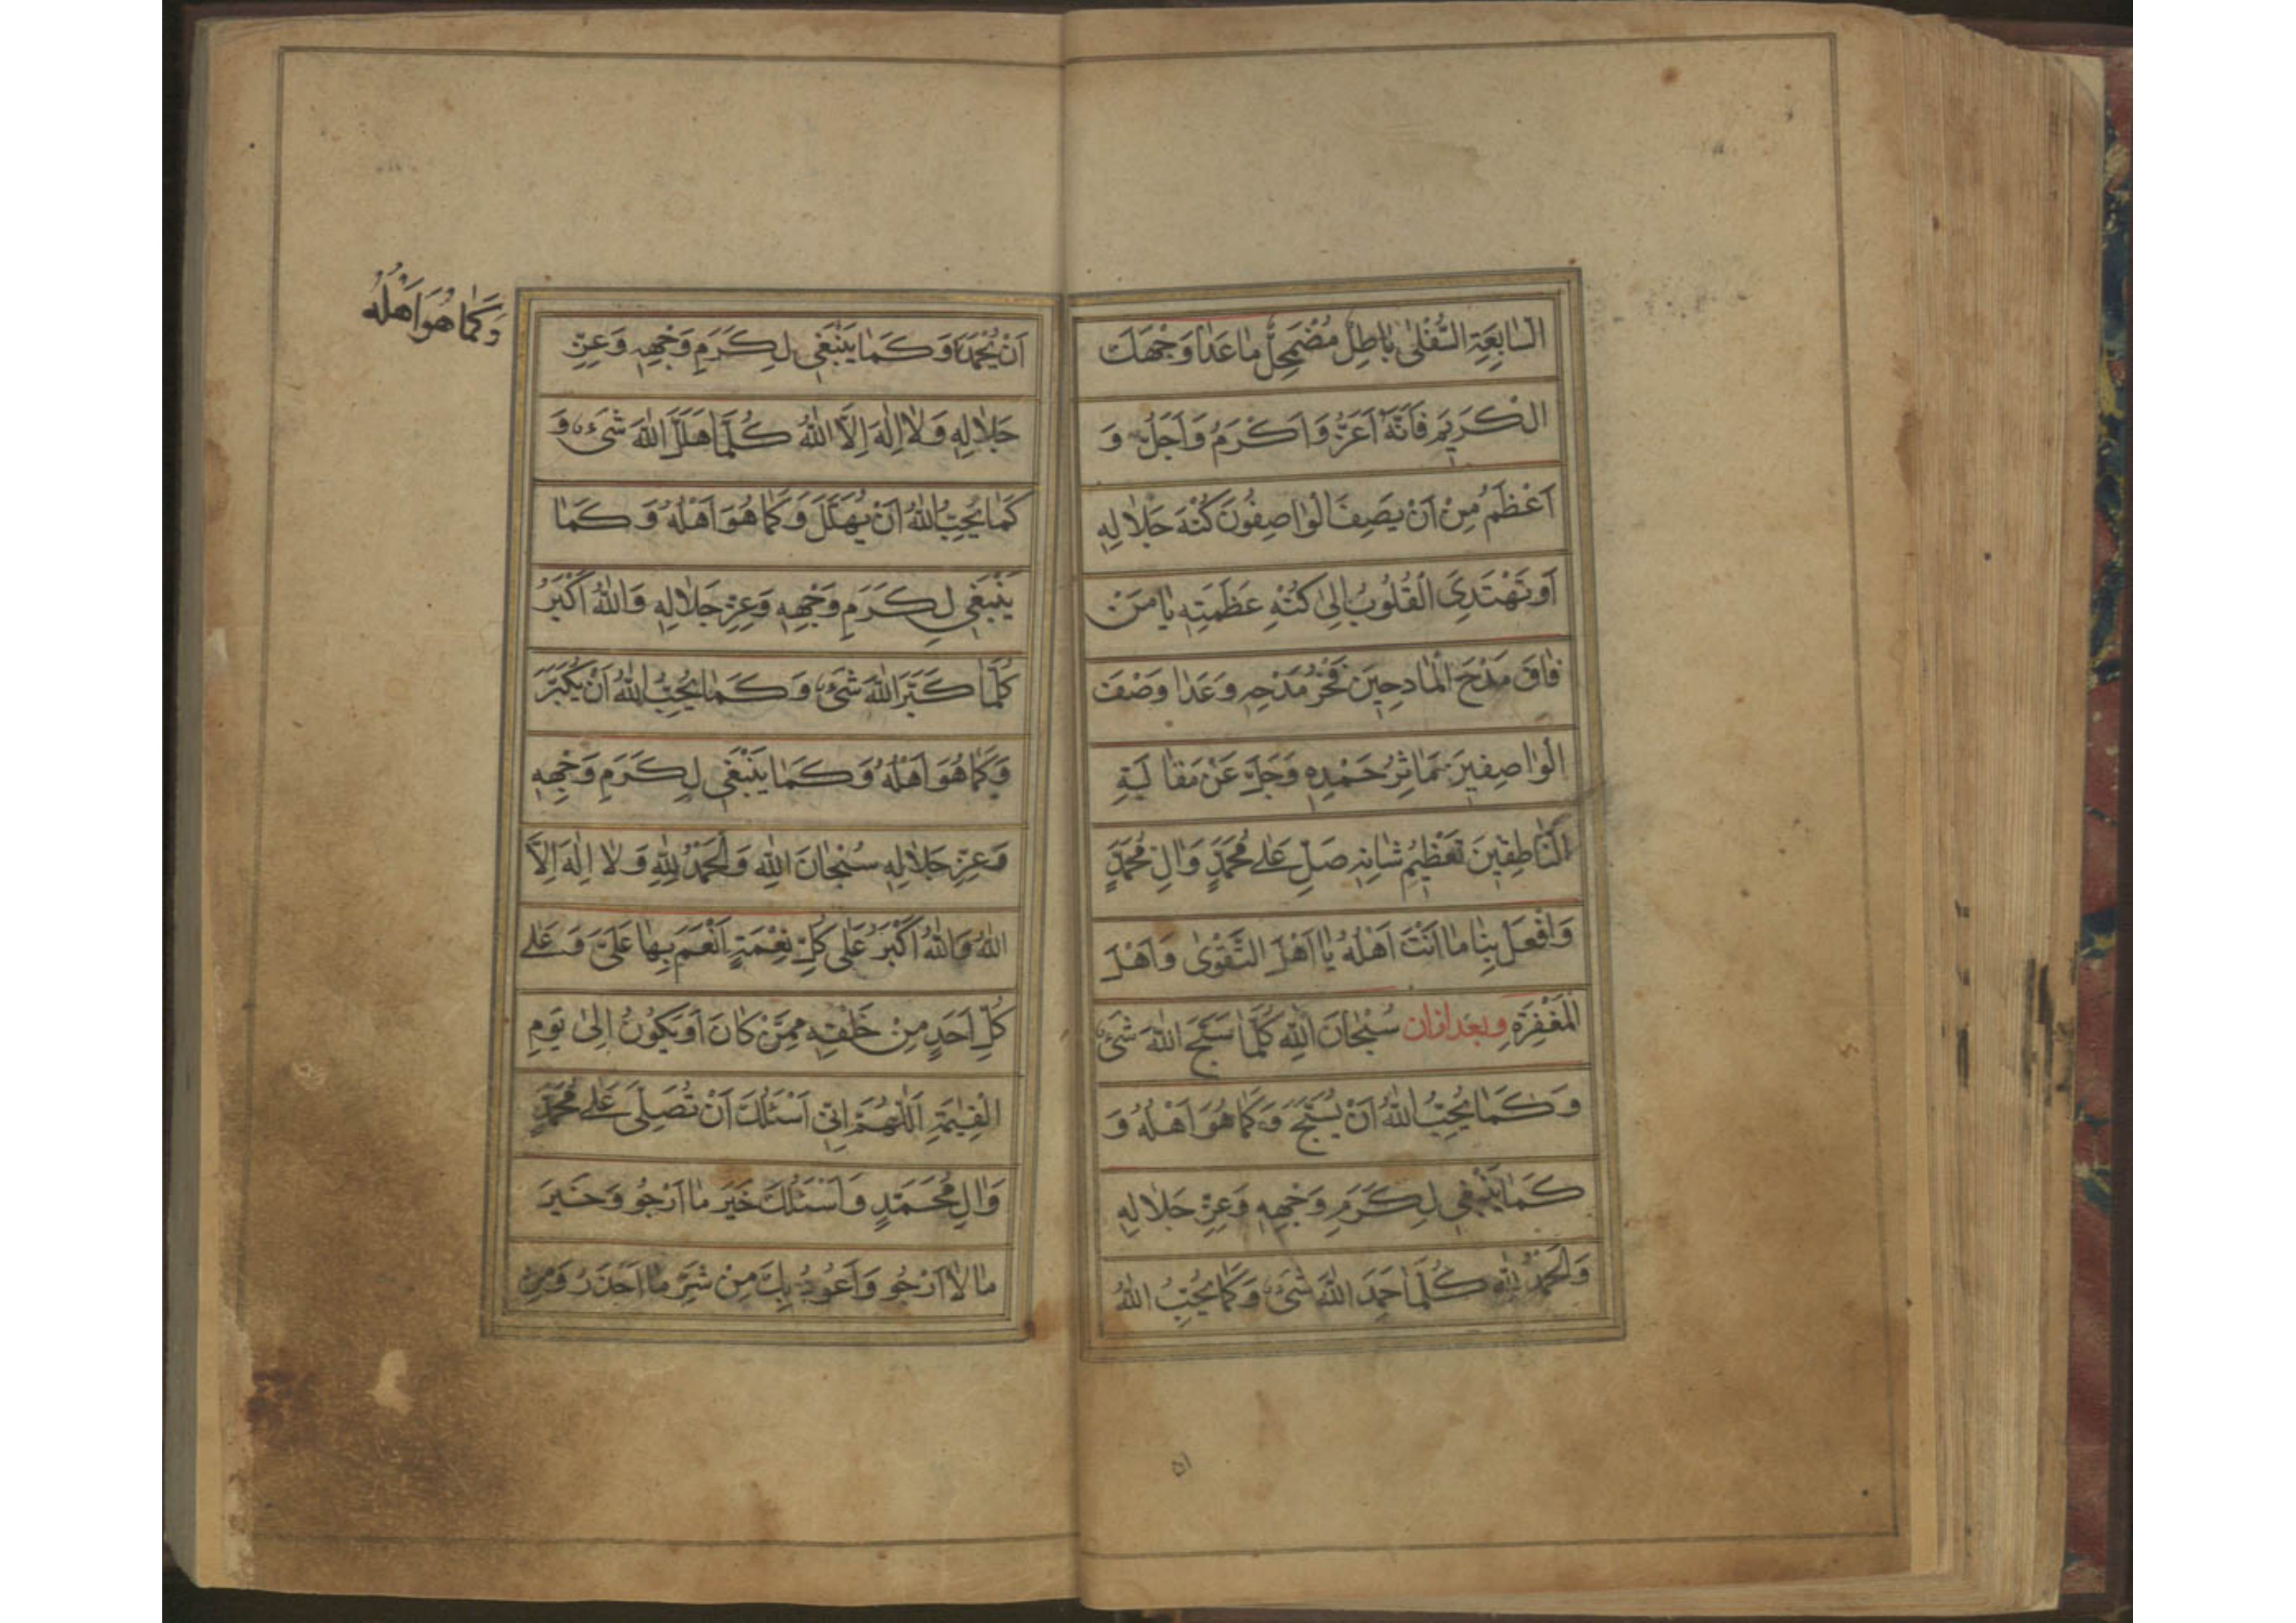 السّابِعَةِ السُّفْلىٰ بٰاطِلٌ مُضْمَحِلٌّ مٰا عَدٰا وَجْهَكَ
الْكَرِيمَ فَاَنَّهُ اَعَزُّ وَ اَكْرَمُ وَ اَجَلُّ وَ
اَعْظَمُ مِنْ اَنْ يَصِفَ الْوٰاصِفُونَ كُنْهَ جَلٰالِهِ
اَوْ تَهْتَدِىَ الْقُلُوبُ اِلىٰ كُنْهِ عَظَمَتِهِ يٰا مَنْ
فٰاقَ مَدْحَ الْمٰادِحِينَ فَخْرُ مَدْحِهِ وَعَدٰا وَصْفَ
الْوٰاصِفِينَ مَاٰثِرُ حَمْدِهِ وَجَلَّ عَنْ مَقٰالَةِ
النّٰاطِقِينَ تَعْظِيمُ شٰانِهِ صَلِّ عَلٰى مُحَمَّدٍ وَاٰلِ مُحَمَّدٍ
وَافْعَلْ بِنٰا مٰا اَنْتَ اَهْلُهُ يٰا اَهْلَ التَّقْوىٰ وَ اَهْلَ
الْمَغْفِرَةِ و بعد ازان سُبْحٰانَ اللّٰهِ كُلَّمٰا سَبَّحَ اللّٰهَ شَىْءٌ
وَ كَمٰا يُحِبُّ اللّٰهُ اَنْ يُسَبَّحَ وَ كَمٰا هُوَ اَهْلُهُ وَ
كَمٰا يَنْبَغِى لِكَرَمِ وَجْهِهِ وَعِزِّ جَلٰالِهِ
وَالْحَمْدُ لِلّٰهِ كُلَّمٰا حَمِدَ اللّٰهَ شَىْءٌ وَ كَمٰا يُحِبُّ اللّٰهُ
٥١
اَنْ يُحْمَدَ وَ كَمٰا يَنْبَغِى لِكَرَمِ وَجْهِهِ وَعِزِّ
وَكَمٰا هُوَ اَهْلُهُ
جَلٰالِهِ وَلٰا اِلٰهَ اِلَّا اللّٰهُ كُلَّمٰا هَلَّلَ اللّٰهَ شَىْءٌ وَ
كَمٰا يُحِبُّ اللّٰهُ اَنْ يُهَلَّلَ وَ كَمٰا هُوَ اَهْلُهُ وَ كَمٰا
يَنْبَغِى لِكَرَمِ وَجْهِهِ وَعِزِّ جَلٰالِهِ وَاللّٰهُ اَكْبَرُ
كُلَّمٰا كَبَّرَ اللّٰهَ شَىْءٌ وَ كَمٰا يُحِبُّ اللّٰهُ اَنْ يُكَبَّرَ
وَ كَمٰا هُوَ اَهْلُهُ وَ كَمٰا يَنْبَغِى لِكَرَمِ وَجْهِهِ
وَعِزِّ جَلٰالِهِ سُبْحٰانَ اللّٰهِ وَالْحَمْدُ لِلّٰهِ وَلٰا اِلٰهَ اِلَّا
اللّٰهُ وَاللّٰهُ اَكْبَرُ عَلٰى كُلِّ نِعْمَةٍ اَنْعَمَ بِهٰا عَلَىَّ وَ عَلٰى
كُلِّ اَحَدٍ مِنْ خَلْقِهِ مِمَّنْ كٰانَ اَوْ يَكُونُ اِلىٰ يَوْمِ
الْقِيٰمَةِ اَللّٰهُمَّ اِنِّى اَسْئَلُكَ اَنْ تُصَلِّىَ عَلٰى مُحَمَّدٍ
وَاٰلِ مُحَمَّدٍ وَ اَسْئَلُكَ خَيْرَ مٰا اَرْجُو وَ خَيْرَ
مٰا لٰا اَرْجُو وَ اَعُوذُ بِكَ مِنْ شَرِّ مٰا اَحْذَرُ وَ مِنْ